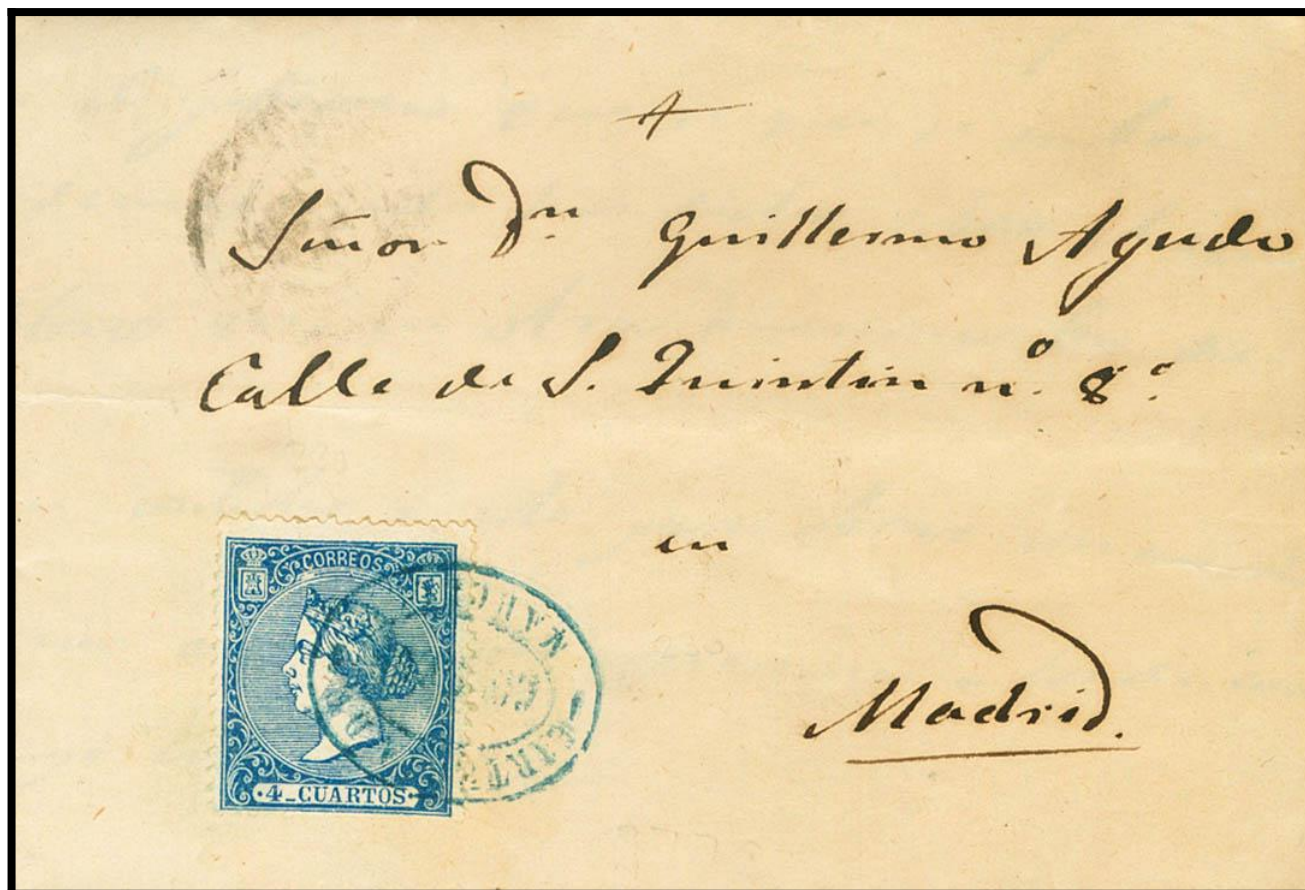 A
Señor Dn Guillermo Agudo
Calle de S. Quintin nº. 8º.
en
Madrid.
CORREOS
4_CUARTOS
CARTE